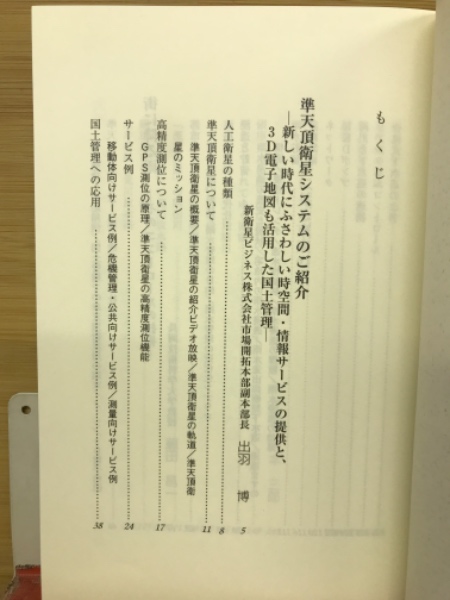 もくじ
準天頂衛星システムのご紹介
―新しい時代にふさわしい時空間・情報サービスの提供と、
3D電子地図も活用した国土管理―
新衛星ビジネス株式会社市場開拓本部副本部長 出羽 博 5
人工衛星の種類 8
準天頂衛星について 11
準天頂衛星の概要/準天頂衛星の紹介ビデオ放映/準天頂衛星の軌道/準天頂衛
星のミッション
高精度測位について 17
GPS測位の原理/準天頂衛星の高精度測位機能
サービス例 24
移動体向けサービス例/危機管理・公共向けサービス例/測量向けサービス例
国土管理への応用 38